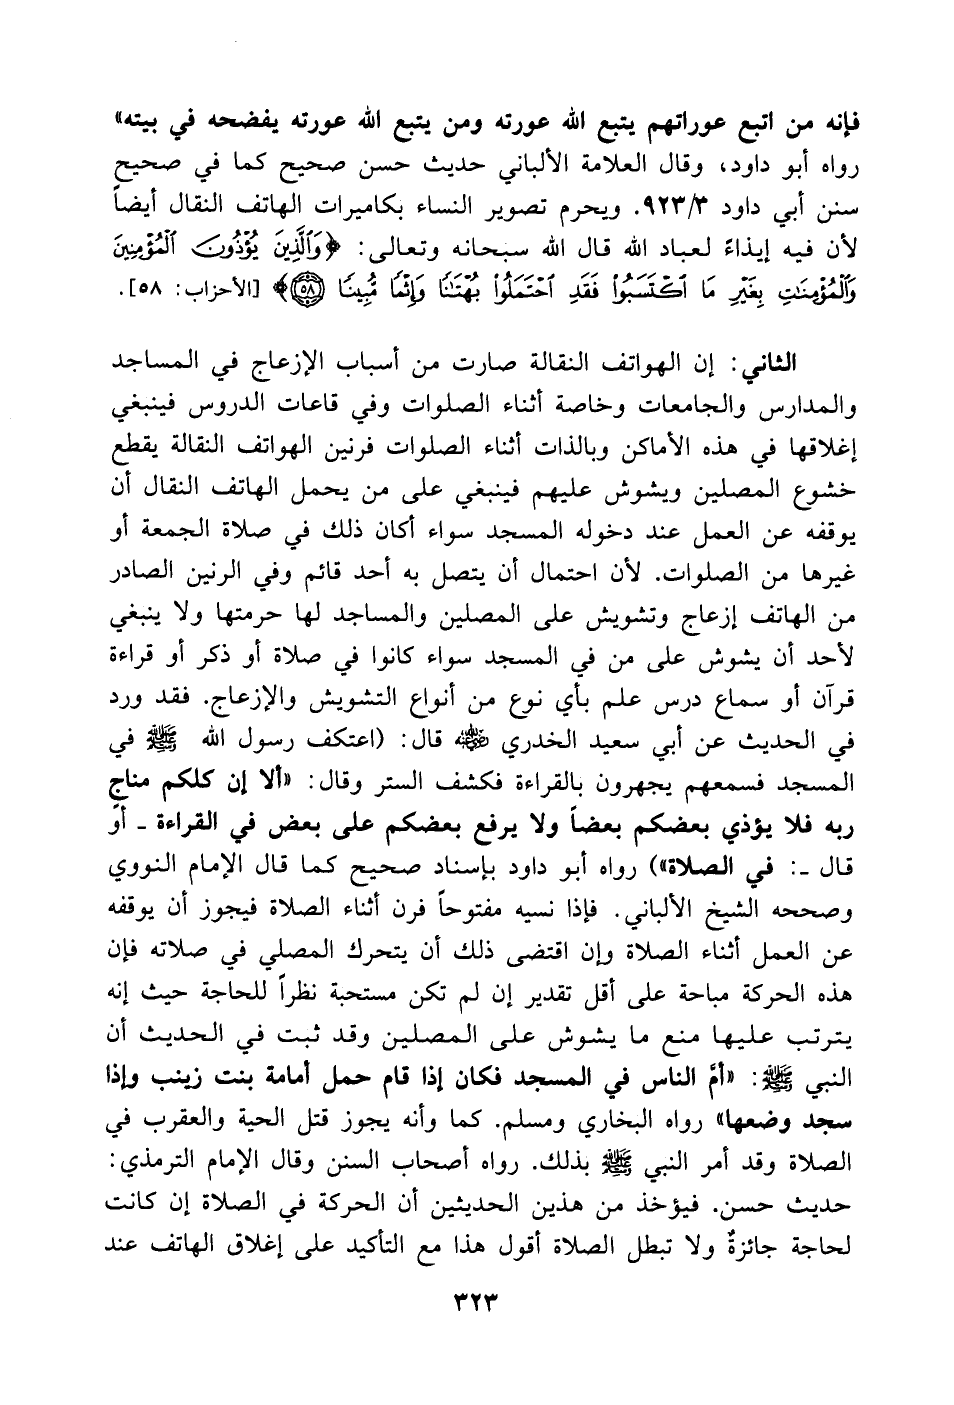 فإنه من اتبع عوراتهم يتبع الله عورته ومن يتبع الله عورته يفضحه في بيته»
رواه أبو داود، وقال العلامة الألباني حديث حسن صحيح كما في صحيح
سنن أبي داود ٩٢٣/٣. ويحرم تصوير النساء بكاميرات الهاتف النقال أيضاً
لأن فيه إيذاءً لعباد الله قال الله سبحانه وتعالى: ﴿وَٱلَّذِينَ يُؤْذُونَ ٱلْمُؤْمِنِينَ
وَٱلْمُؤْمِنَٰتِ بِغَيْرِ مَا ٱكْتَسَبُوا۟ فَقَدِ ٱحْتَمَلُوا۟ بُهْتَٰنًا وَإِثْمًا مُّبِينًا ۝٥٨﴾ [الأحزاب: ٥٨].
الثاني: إن الهواتف النقالة صارت من أسباب الإزعاج في المساجد
والمدارس والجامعات وخاصة أثناء الصلوات وفي قاعات الدروس فينبغي
إغلاقها في هذه الأماكن وبالذات أثناء الصلوات فرنين الهواتف النقالة يقطع
خشوع المصلين ويشوش عليهم فينبغي على من يحمل الهاتف النقال أن
يوقفه عن العمل عند دخوله المسجد سواء أكان ذلك في صلاة الجمعة أو
غيرها من الصلوات. لأن احتمال أن يتصل به أحد قائم وفي الرنين الصادر
من الهاتف إزعاج وتشويش على المصلين والمساجد لها حرمتها ولا ينبغي
لأحد أن يشوش على من في المسجد سواء كانوا في صلاة أو ذكر أو قراءة
قرآن أو سماع درس علم بأي نوع من أنواع التشويش والإزعاج. فقد ورد
في الحديث عن أبي سعيد الخدري رضي الله عنه قال: (اعتكف رسول الله ﷺ في
المسجد فسمعهم يجهرون بالقراءة فكشف الستر وقال: «ألا إن كلكم مناجٍ
ربه فلا يؤذي بعضكم بعضاً ولا يرفع بعضكم على بعض في القراءة ـ أو
قال ـ: في الصلاة») رواه أبو داود بإسناد صحيح كما قال الإمام النووي
وصححه الشيخ الألباني. فإذا نسيه مفتوحاً فرن أثناء الصلاة فيجوز أن يوقفه
عن العمل أثناء الصلاة وإن اقتضى ذلك أن يتحرك المصلي في صلاته فإن
هذه الحركة مباحة على أقل تقدير إن لم تكن مستحبة نظراً للحاجة حيث إنه
يترتب عليها منع ما يشوش على المصلين وقد ثبت في الحديث أن
النبي ﷺ: «أمَّ الناس في المسجد فكان إذا قام حمل أمامة بنت زينب وإذا
سجد وضعها» رواه البخاري ومسلم. كما وأنه يجوز قتل الحية والعقرب في
الصلاة وقد أمر النبي ﷺ بذلك. رواه أصحاب السنن وقال الإمام الترمذي:
حديث حسن. فيؤخذ من هذين الحديثين أن الحركة في الصلاة إن كانت
لحاجة جائزةٌ ولا تبطل الصلاة أقول هذا مع التأكيد على إغلاق الهاتف عند
٣٢٣